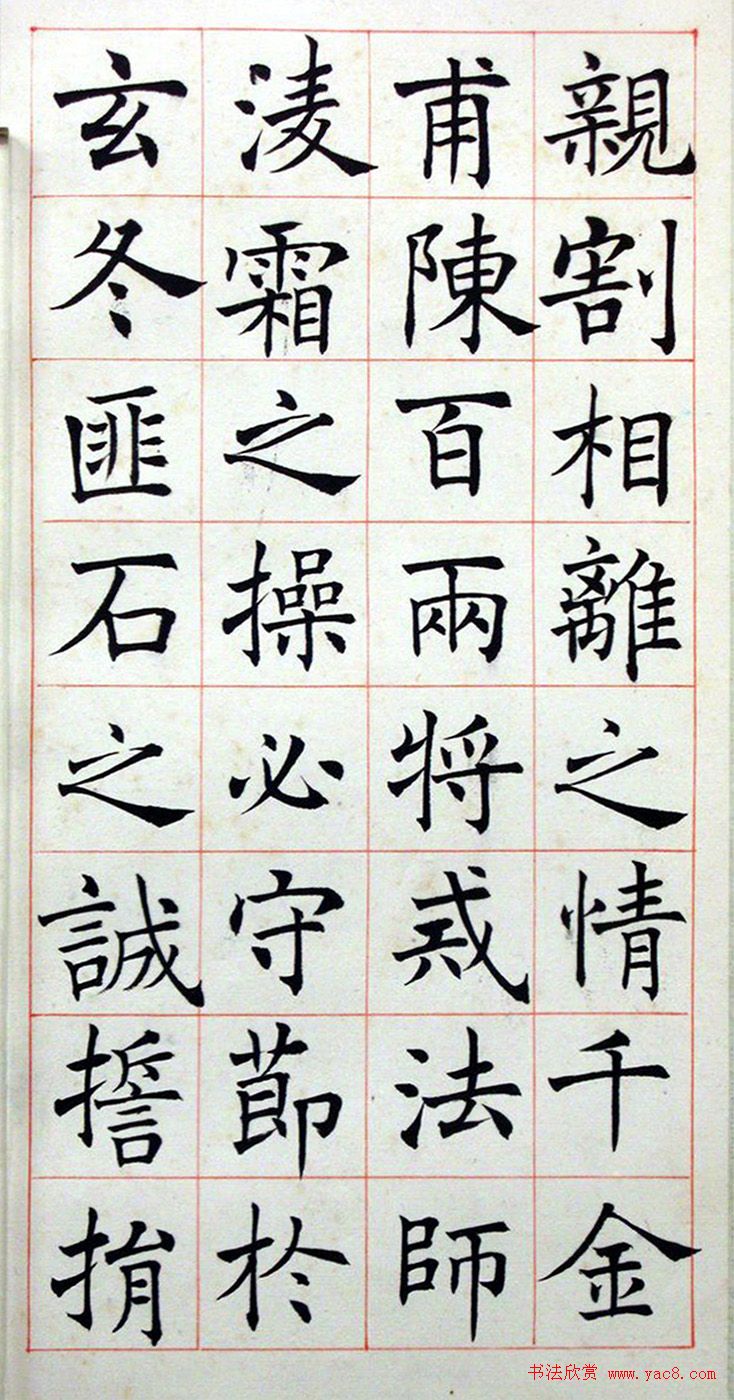 親割相離之情千金
甫陳百兩将戒法師
淩霜之操必守莭於
玄冬匪石之誠誓捐
书法欣赏 www.yac8.com